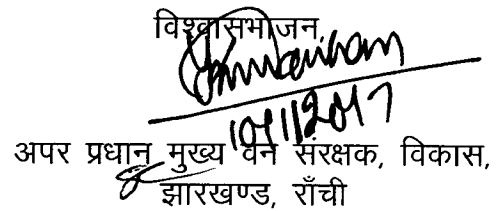 विश्वासभाजन,
अपर प्रधान मुख्य वन संरक्षक, विकास,
झारखण्ड, राँची